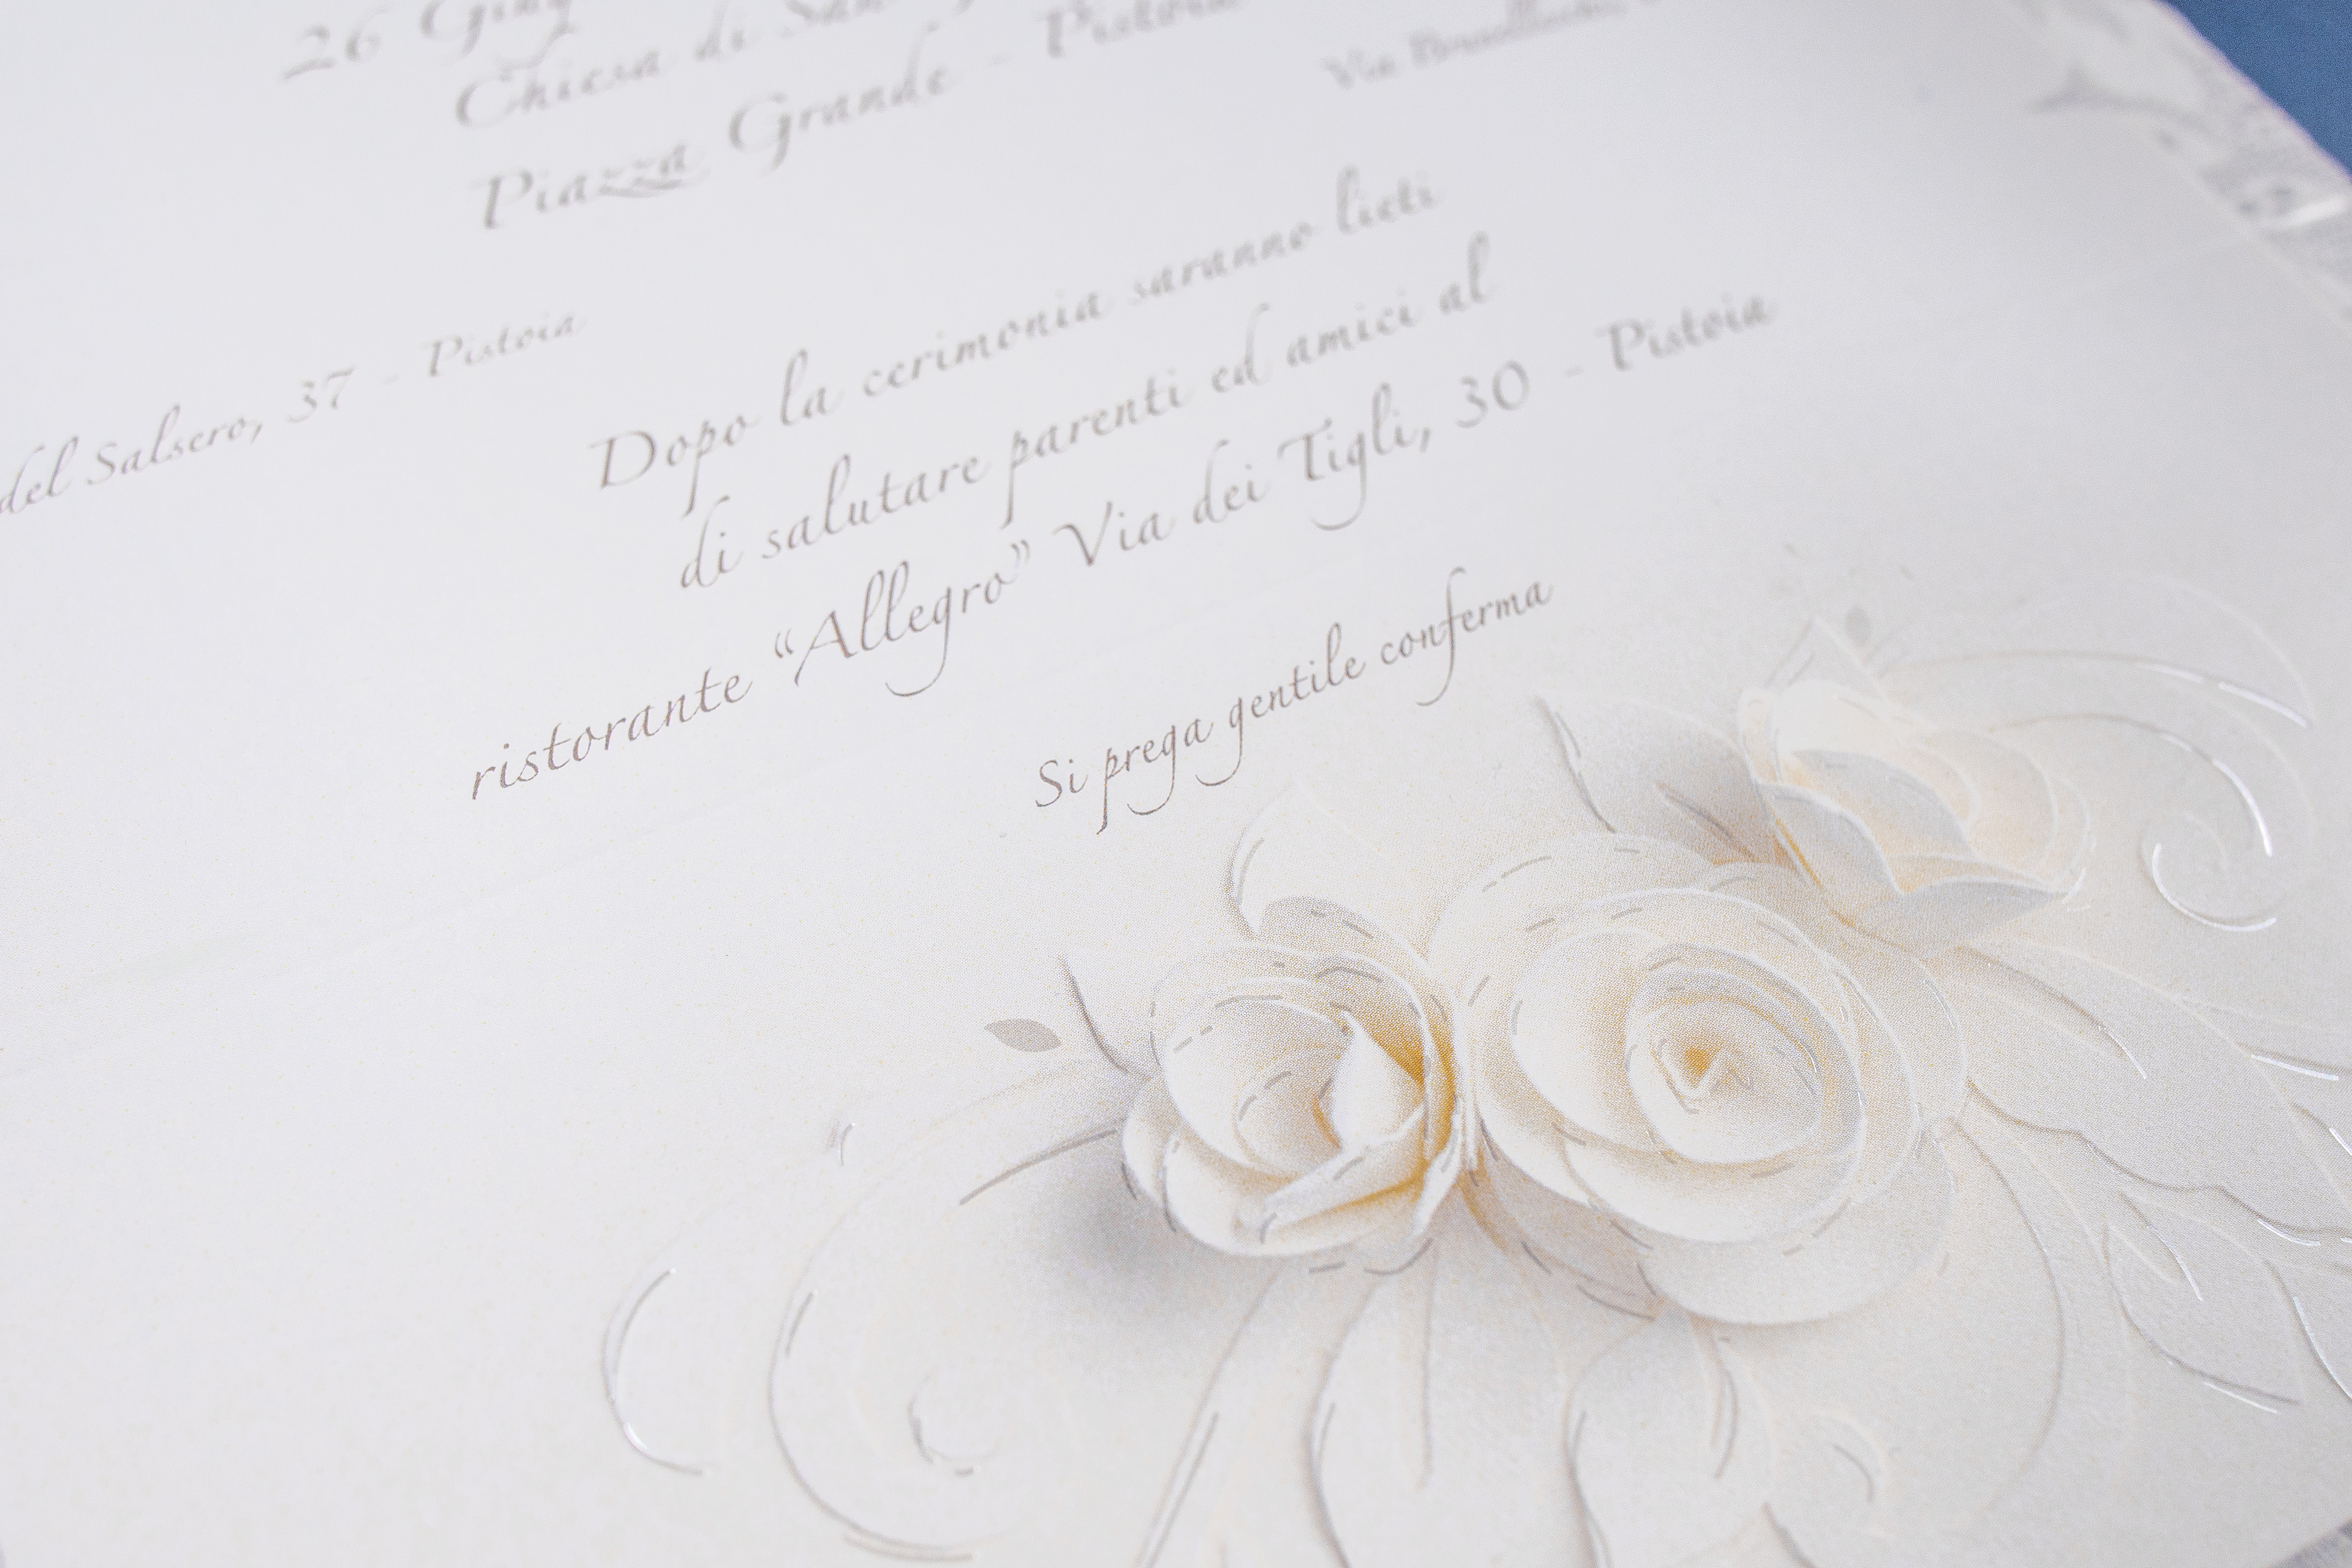 26
Chiesa di San
Piazza Grande - Pistoia
Via
del Salsero, 37 - Pistoia
Dopo la cerimonia saranno lieti
di salutare parenti ed amici al
ristorante “Allegro” Via dei Tigli, 30 - Pistoia
Si prega gentile conferma